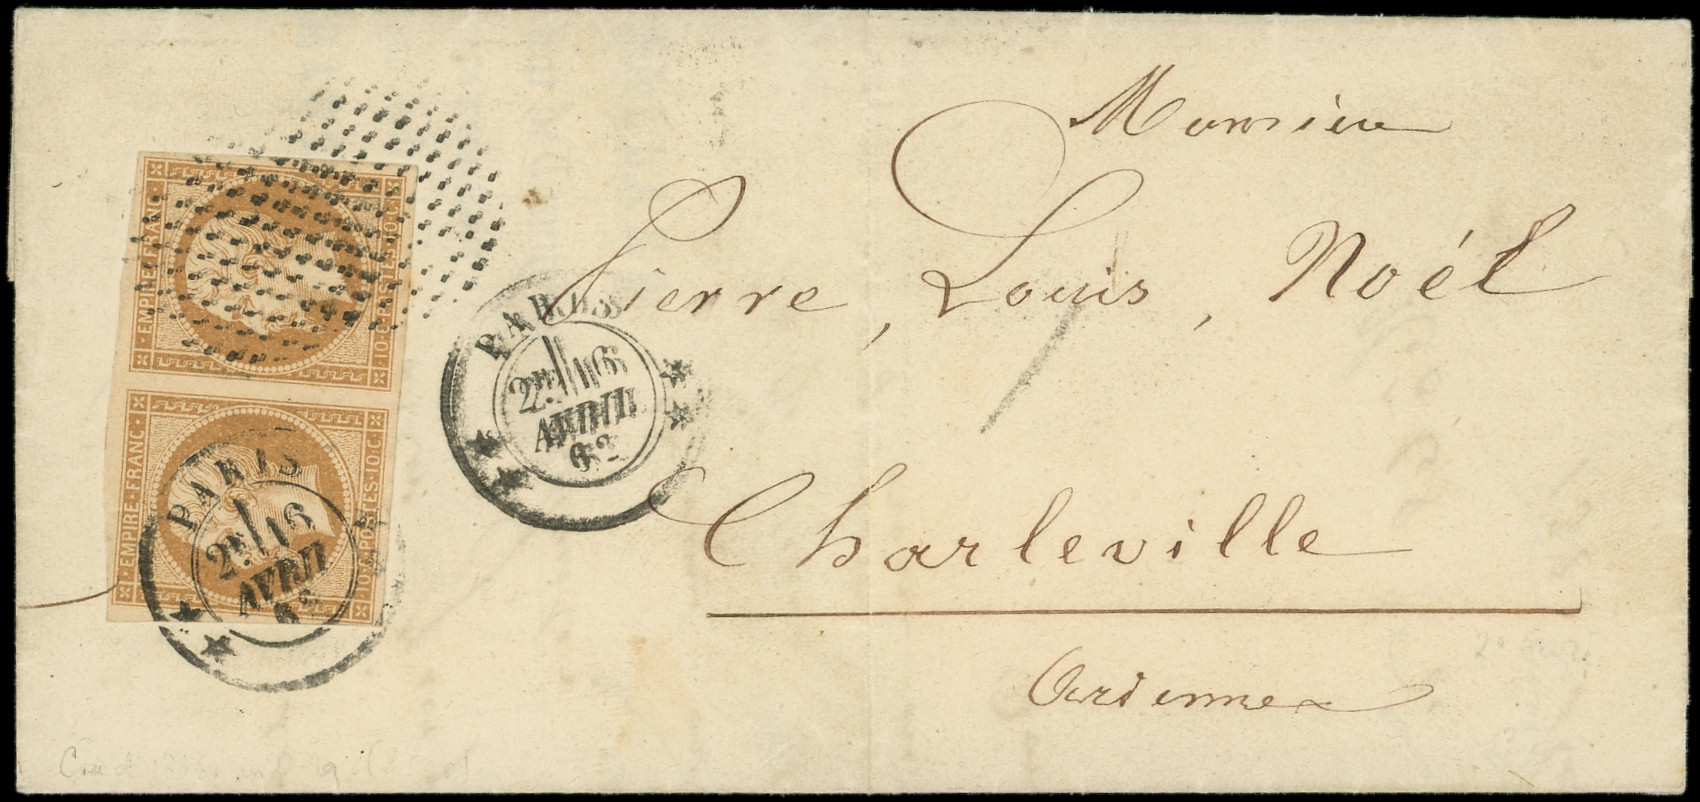 Monsieur
Pierre, Louis, Noél
Charleville
Ardennes
EMPIRE·FRANC·
10·C·POSTES·10·C·
EMPIRE·FRANC·
10·C·POSTES·10·C·
PARIS
2E 16
AVRIL
62
PARIS
2E 16
AVRIL
62